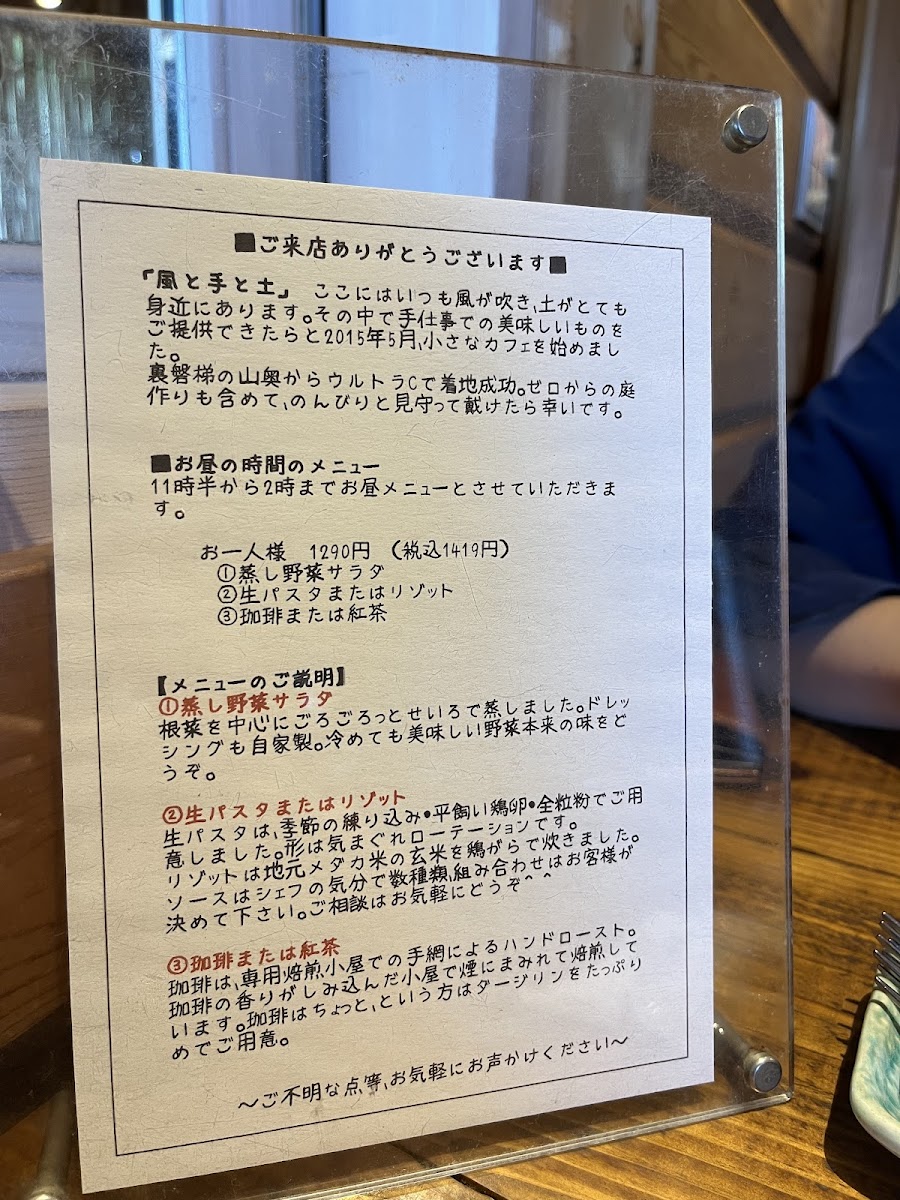 ■ご来店ありがとうございます■
「風と手と土」 ここにはいつも風が吹き、土がとても
身近にあります。その中で手仕事での美味しいものを
ご提供できたらと2015年5月、小さなカフェを始めまし
た。
裏磐梯の山奥からウルトラCで着地成功。ゼロからの庭
作りも含めて、のんびりと見守って戴けたら幸いです。
■お昼の時間のメニュー
11時半から2時までお昼メニューとさせていただきま
す。
お一人様 1290円 (税込1419円)
①蒸し野菜サラダ
②生パスタまたはリゾット
③珈琲または紅茶
【メニューのご説明】
①蒸し野菜サラダ
根菜を中心にごろごろっとせいろで蒸しました。ドレッ
シングも自家製。冷めても美味しい野菜本来の味をど
うぞ。
②生パスタまたはリゾット
生パスタは、季節の練り込み•平飼い鶏卵•全粒粉でご用
意しました。形は気まぐれローテーションです。
リゾットは地元メダカ米の玄米を鶏がらで炊きました。
ソースはシェフの気分で数種類、組み合わせはお客様が
決めて下さい。ご相談はお気軽にどうぞ^ ^
③珈琲または紅茶
珈琲は、専用焙煎小屋での手網によるハンドロースト。
珈琲の香りがしみ込んだ小屋で煙にまみれて焙煎して
います。珈琲はちょっと、という方はダージリンをたっぷり
めでご用意。
～ご不明な点等、お気軽にお声かけください～